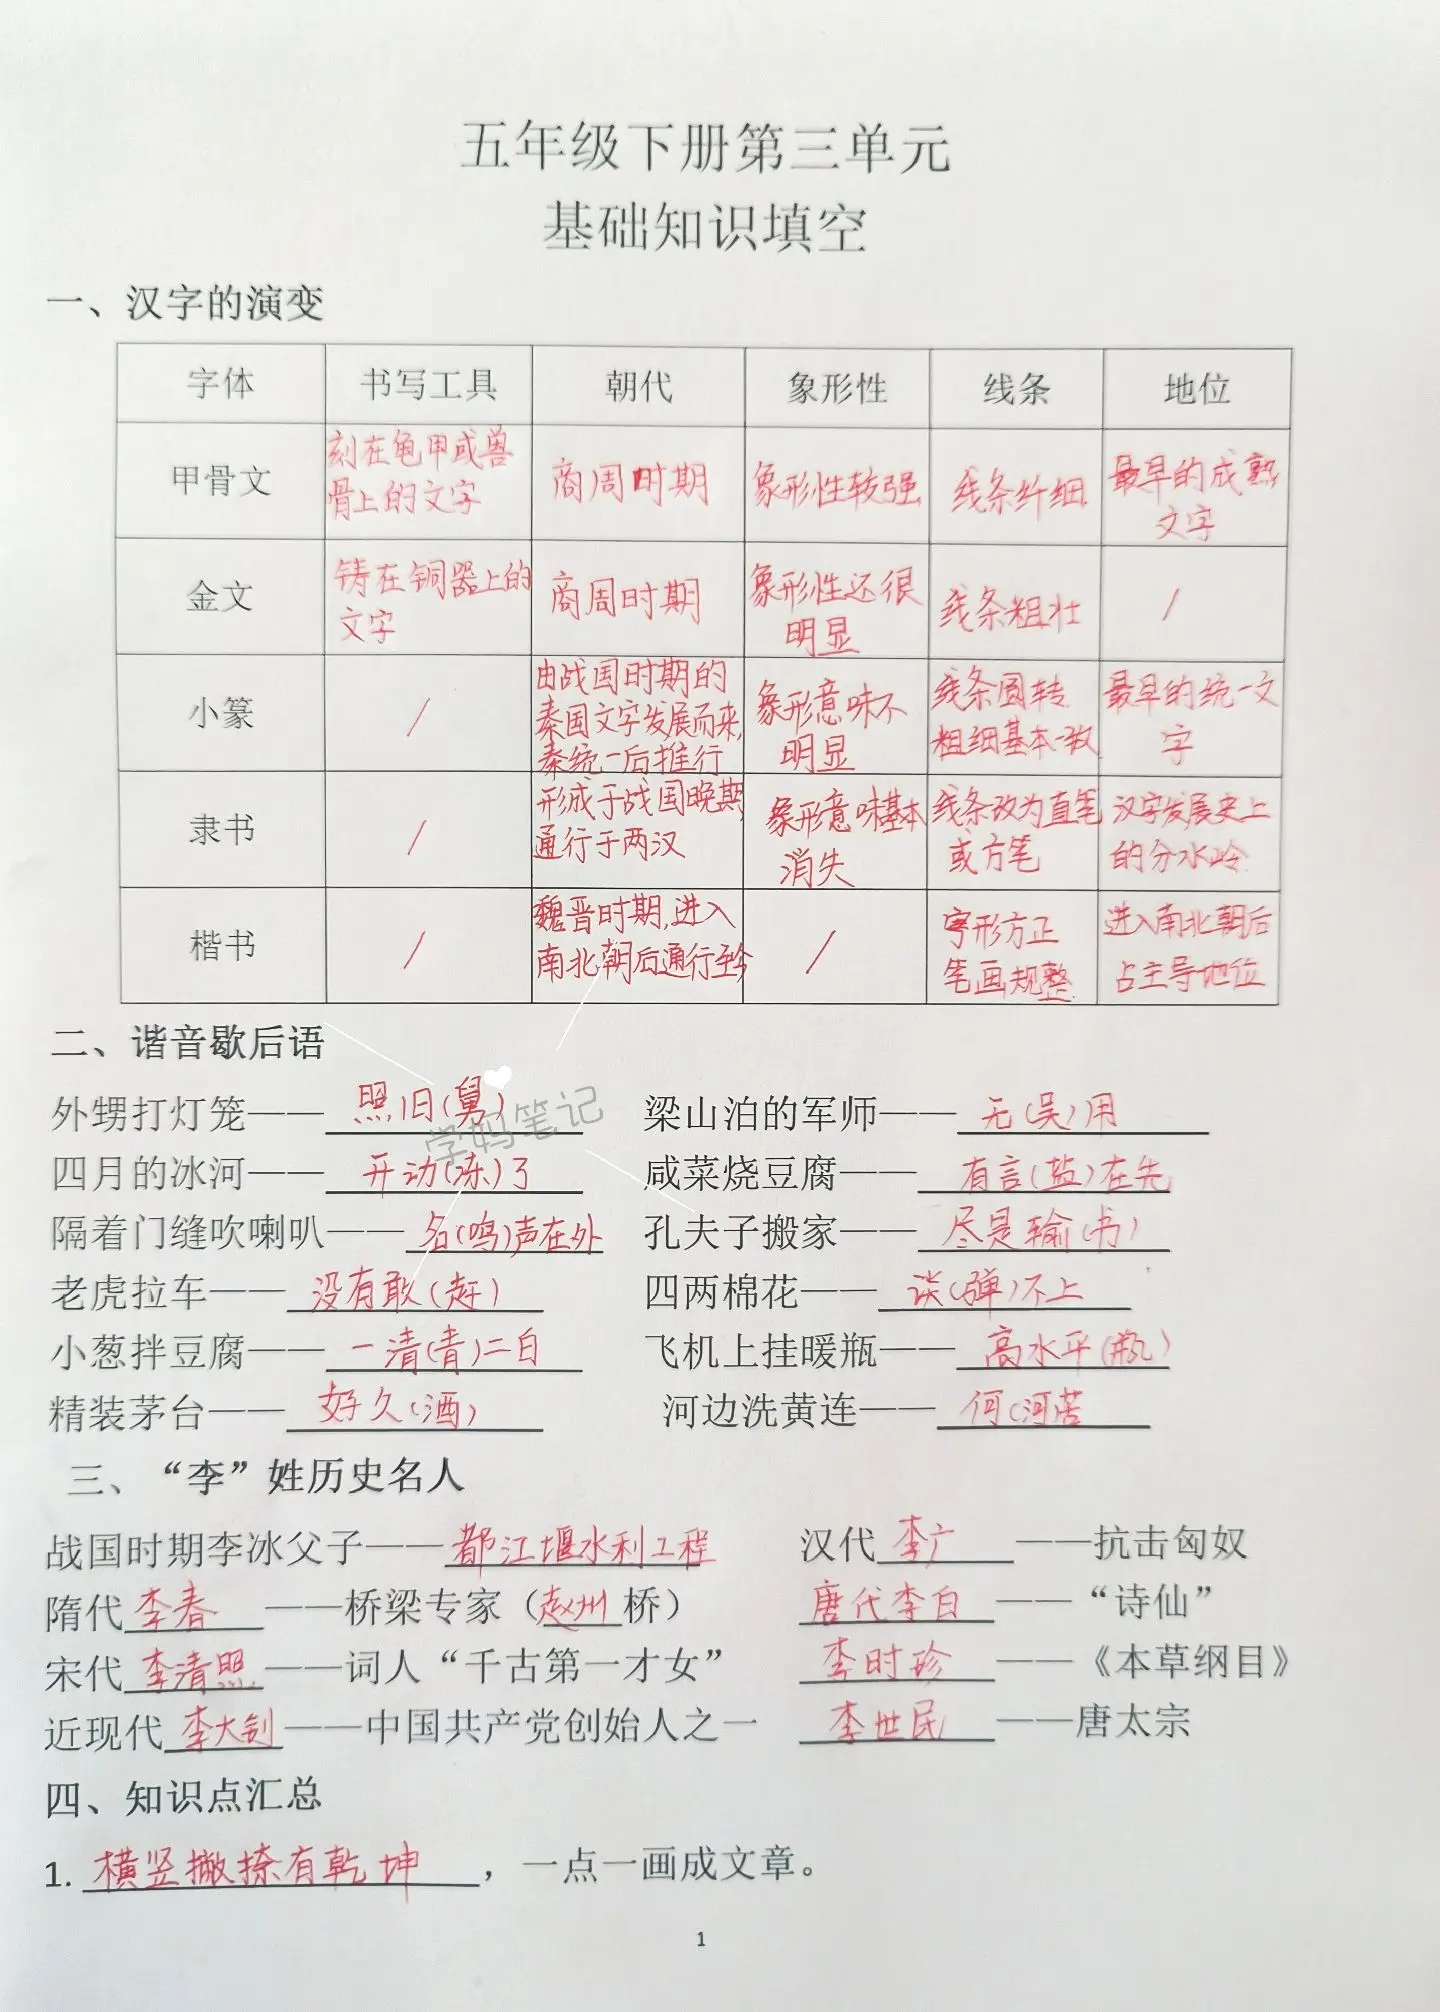 五年级下册第三单元
基础知识填空
一、汉字的演变
字体 书写工具 朝代 象形性 线条 地位
甲骨文 刻在龟甲或兽骨上的文字 商周时期 象形性较强 线条纤细 最早的成熟文字
金文 铸在铜器上的文字 商周时期 象形性还很明显 线条粗壮 /
小篆 / 由战国时期的秦国文字发展而来,秦统一后推行 象形意味不明显 线条圆转粗细基本一致 最早的统一文字
隶书 / 形成于战国晚期,通行于两汉 象形意味基本消失 线条改为直笔或方笔 汉字发展史上的分水岭
楷书 / 魏晋时期,进入南北朝后通行至今 / 字形方正笔画规整 进入南北朝后占主导地位
二、谐音歇后语
外甥打灯笼——照旧(舅) 梁山泊的军师——无(吴)用
四月的冰河——开动(冻)了 咸菜烧豆腐——有言(盐)在先
隔着门缝吹喇叭——名(鸣)声在外 孔夫子搬家——尽是输(书)
老虎拉车——没有敢(赶) 四两棉花——谈(弹)不上
小葱拌豆腐——一清(青)二白 飞机上挂暖瓶——高水平(瓶)
精装茅台——好久(酒) 河边洗黄连——何(河苦
学妈笔记
三、“李”姓历史名人
战国时期李冰父子——都江堰水利工程 汉代李广——抗击匈奴
隋代李春——桥梁专家（赵州桥） 唐代李白——“诗仙”
宋代李清照——词人“千古第一才女” 李时珍——《本草纲目》
近现代李大钊——中国共产党创始人之一 李世民——唐太宗
四、知识点汇总
1. 横竖撇捺有乾坤，一点一画成文章。
1